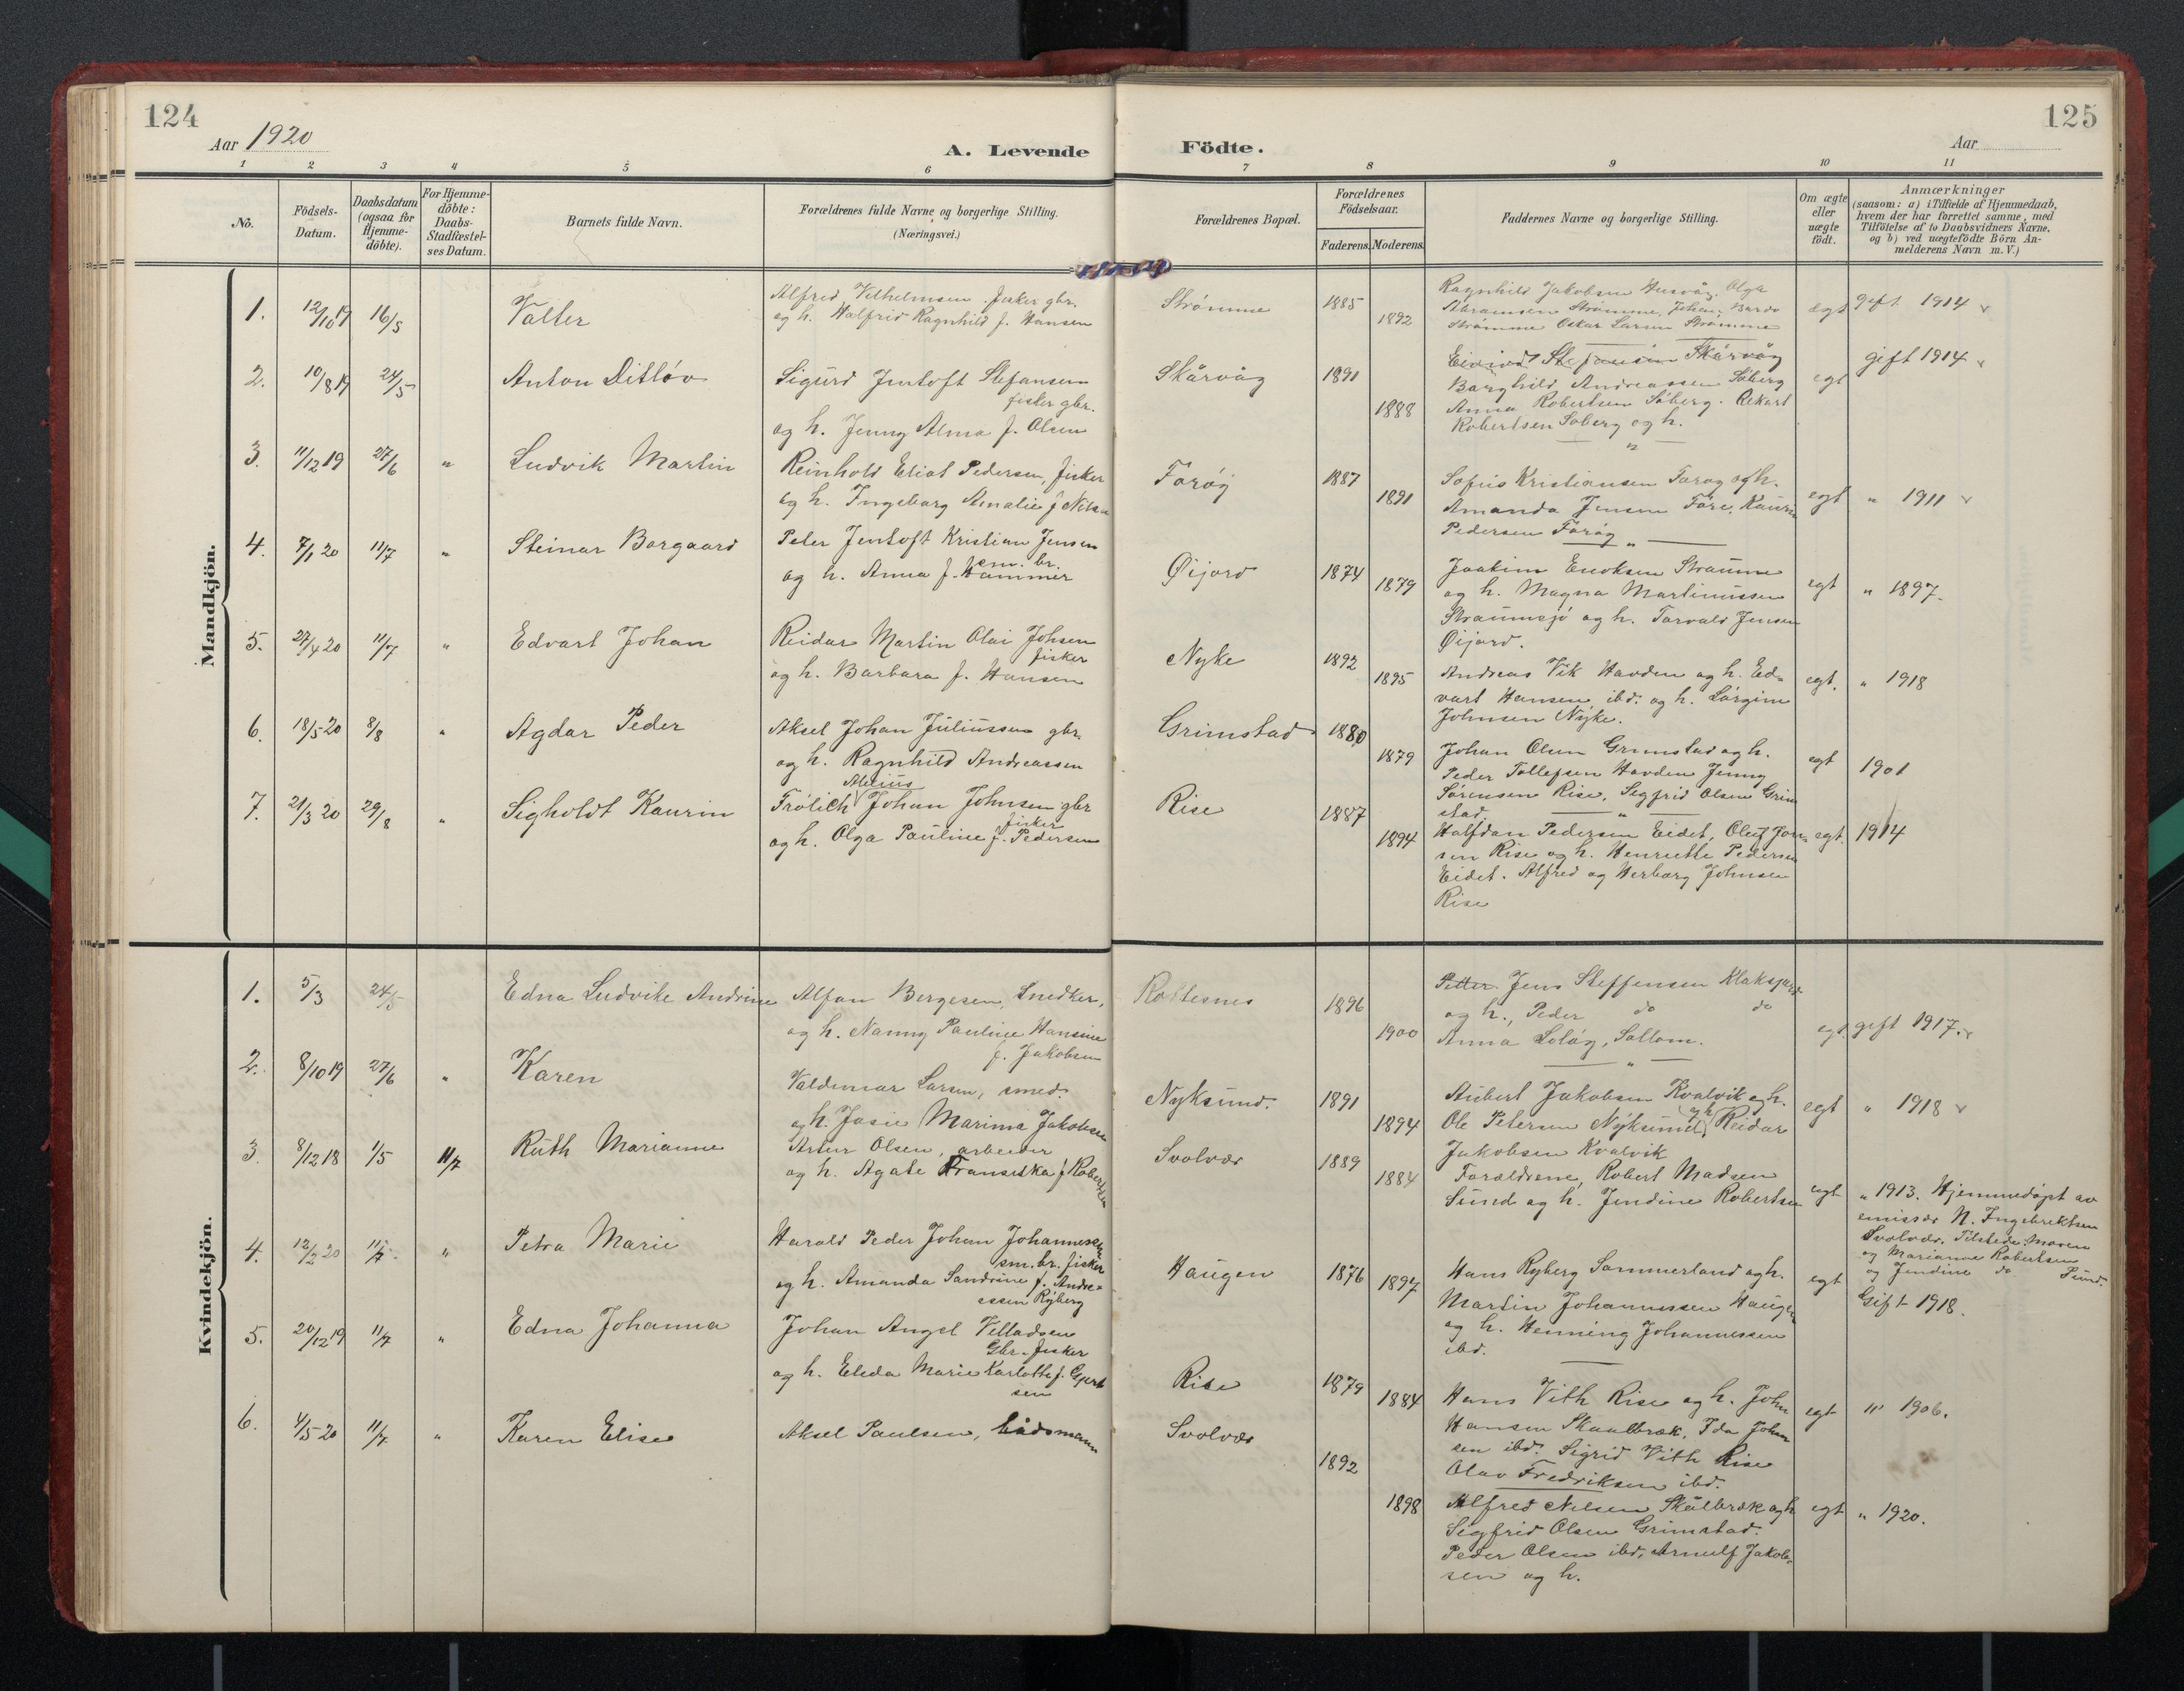 124
Aar 1920
A. Levende
1 2 3 4 5 6
No.
Födsels-Datum.
Daabsdatum (ogsaa for Hjemme-döbte).
For Hjemme-döbte: Daabs-Stadfæstel-ses Datum.
Barnets fulde Navn.
Forældrenes fulde Navne og borgerlige Stilling.
(Næringsvei.)
Mandkjön.
1. 12/10 19 16/5 Valter
Alfred Vilhelmsen. fisker gbr.
og h. Halfrid Ragnhild f. Hansen
2. 10/8 19 24/5 Anton Ditløv
Sigurd Jentoft Stefansen
fisker gbr.
og h. Jenny Alma f. Olsen
3. 11/12 19 27/6 " Ludvik Martin
Reinhold Eliot Pedersen, fisker
og h. Ingeborg Amalie f. Nilsen
4. 7/1 20 11/7 " Steinar Borgaard
Peter Jentoft Kristian Jensen
sm. br.
og h. Anna f. Hammer
5. 27/4 20 11/7 " Edvart Johan
Reidar Martin Olai Johsen
fisker
og h. Barbara f. Hansen
6. 18/5 20 8/8 " Agdar Peder
Aksel Johan Juliussen gbr.
og h. Ragnhild Andreassen
7. 21/3 20 29/8 " Sigholdt Kaurin
Frölich Johan Johnsen gbr
fisker
og h. Olga Pauline f. Pedersen
Kvindekjön.
1. 5/3 24/5 Edna Ludvike Andrine
Alfon Bergesen, Snedker,
og h. Nanny Pauline Hansine
f. Jakobsen
2. 8/10 19 27/6 " Karen
Valdemar Larsen, smed.
og h. Josie Marima Jakobsen
3 8/12 18 1/5 11/7 Ruth Marianne
Artur Olsen, arbeider
og h. Agate Fransiska f Robertsen
4. 12/2 20 11/7 " Petra Marie
Harald Peder Johan Johannessen
sm. br. fisker
og h. Amanda Sandrine f. Andre-
assen Ryberg
5. 20/12 19 11/7 " Edna Johanna
Johan Angel Villadsen
Gbr. fisker
og h. Elida Marie Karlotte f. Gjert
sen
6. 4/5 20 11/7 " Karen Elise
Aksel Paulsen, bådsmann
125
Födte.
Aar
7 8 9 10 11
Forældrenes Bopæl.
Forældrenes Födselsaar.
Faderens. Moderens.
Faddernes Navne og borgerlige Stilling.
Om ægte eller uægte födt.
Anmærkninger
(saasom: a) i Tilfælde af Hjemmedaab,
hvem der har forrettet samme, med
Tilföielse af to Daabsvidners Navne,
og b) ved uægtefödte Börn An-
melderens Navn m.V.)
Strømme 1885 1892
Ragnhild Jakobsen Husvåg. Olga
Abramsen Strømme, Johan Bardo
Strømme Oskar Larsen Strømme
egt gift 1914
Skårvåg 1891 1888
Eivind Stefansen Skårvåg
Borghild Andreassen Söberg
Anna Robertsen Söberg. Rikart
Robertsen Soberg og h.
egt gift 1914
Forøy 1887 1891
Sofus Kristiansen Forøy og h.
Amanda Jensen Føre. Kaurin
Pedersen Forøy
egt " 1911
Øijord 1874 1879
Joakim Enoksen Straume
og h. Magna Martinussen
Straumsjö og h. Torvald Jensen
Øijord.
egt " 1897.
Nyke 1892 1895
Andreas Vik Havden og h. Ed-
vart Hansen ibd. og h. Lårgine
Johnsen Nyke.
egt. " 1918
Grimstad 1880 1879
Johan Olsen Grimstad og h.
Peder Tollefsen Havden Jenny
Sørensen Rise, Segfrid Olsen Grim
stad.
egt 1901
Rise 1887 1894
Halfdan Pedersen Eidet, Oluf Jon
sen Rise og h. Henriette Pedersen
Eidet. Alfred og Herborg Johnsen
Rise
egt. 1914
1896 1900
Petter Jens Steffensen
og h., Peder do do
Anna
egt gift 1917.
Nyksund. 1891 1894
Aubert Jakobsen Kvalvik og h.
Ole Petersen Nyksund og h Reidar
Jakobsen Kvalvik
egt " 1918
Svolvær 1889 1884
Forældrene, Robert Madsen
Sund og h. Jendine Robertsen
egt " 1913. Hjemmedøpt av
emissær N. Ingebrektsen
Svolvær. Tilstede: Maren
og Marianne Robertsen
og Jendine do Sund.
Haugen 1876 1897
Hans Ryberg Sommerland og h.
Martin Johannessen Haugen
og h. Henning Johannessen
ibd.
egt Gift 1918.
Rise 1879 1884
Hans Vith Rise og h. John
Hansen Skaalbræk, Ida Johan
sen ibd. Sigrid Vith Rise
Olav Fredriksen ibd.
egt " 1906.
Svolvær 1892 1898
Alfred Nilsen Skålbræk og h
Sigfrid Olsen Grimstad.
Peder Olsen ibd, Arnulf Jakob-
sen og h.
egt " 1920.